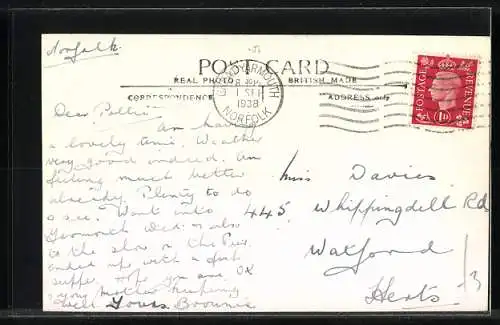 Norfolk
POST CARD
REAL PHOTO BRITISH MADE
CORRESPONDENCE ADDRESS ONLY
GT YARMOUTH
1 SEP
1938
NORFOLK
POSTAGE REVENUE
1D
Dear Pollie
Am having
a lovely time. Weather
very good indeed. Am
feeling much better
already. Plenty to do
& see. Went into
Yarmouth Wed. & also
to the show on the Pier
ended up with a fish
supper. Hope you are OK
& your mother keeping
well Yours Brownie
Miss Davies
445 Whippingdell Rd
Watford
Herts